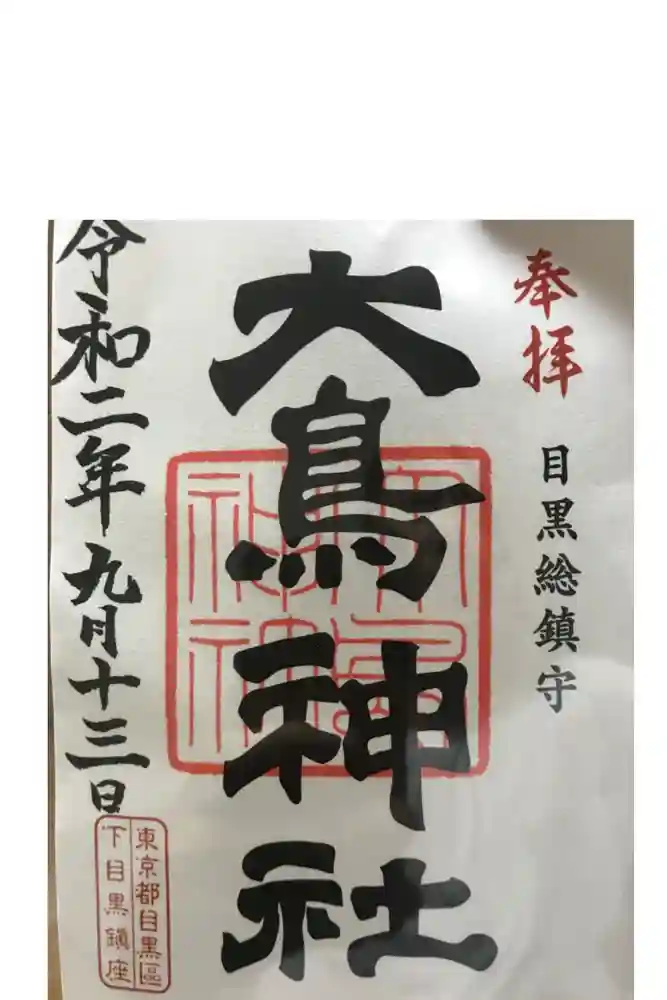 奉拝
目黒総鎮守
大鳥神社
令和二年九月十三日
東京都目黒區
下目黒鎮座